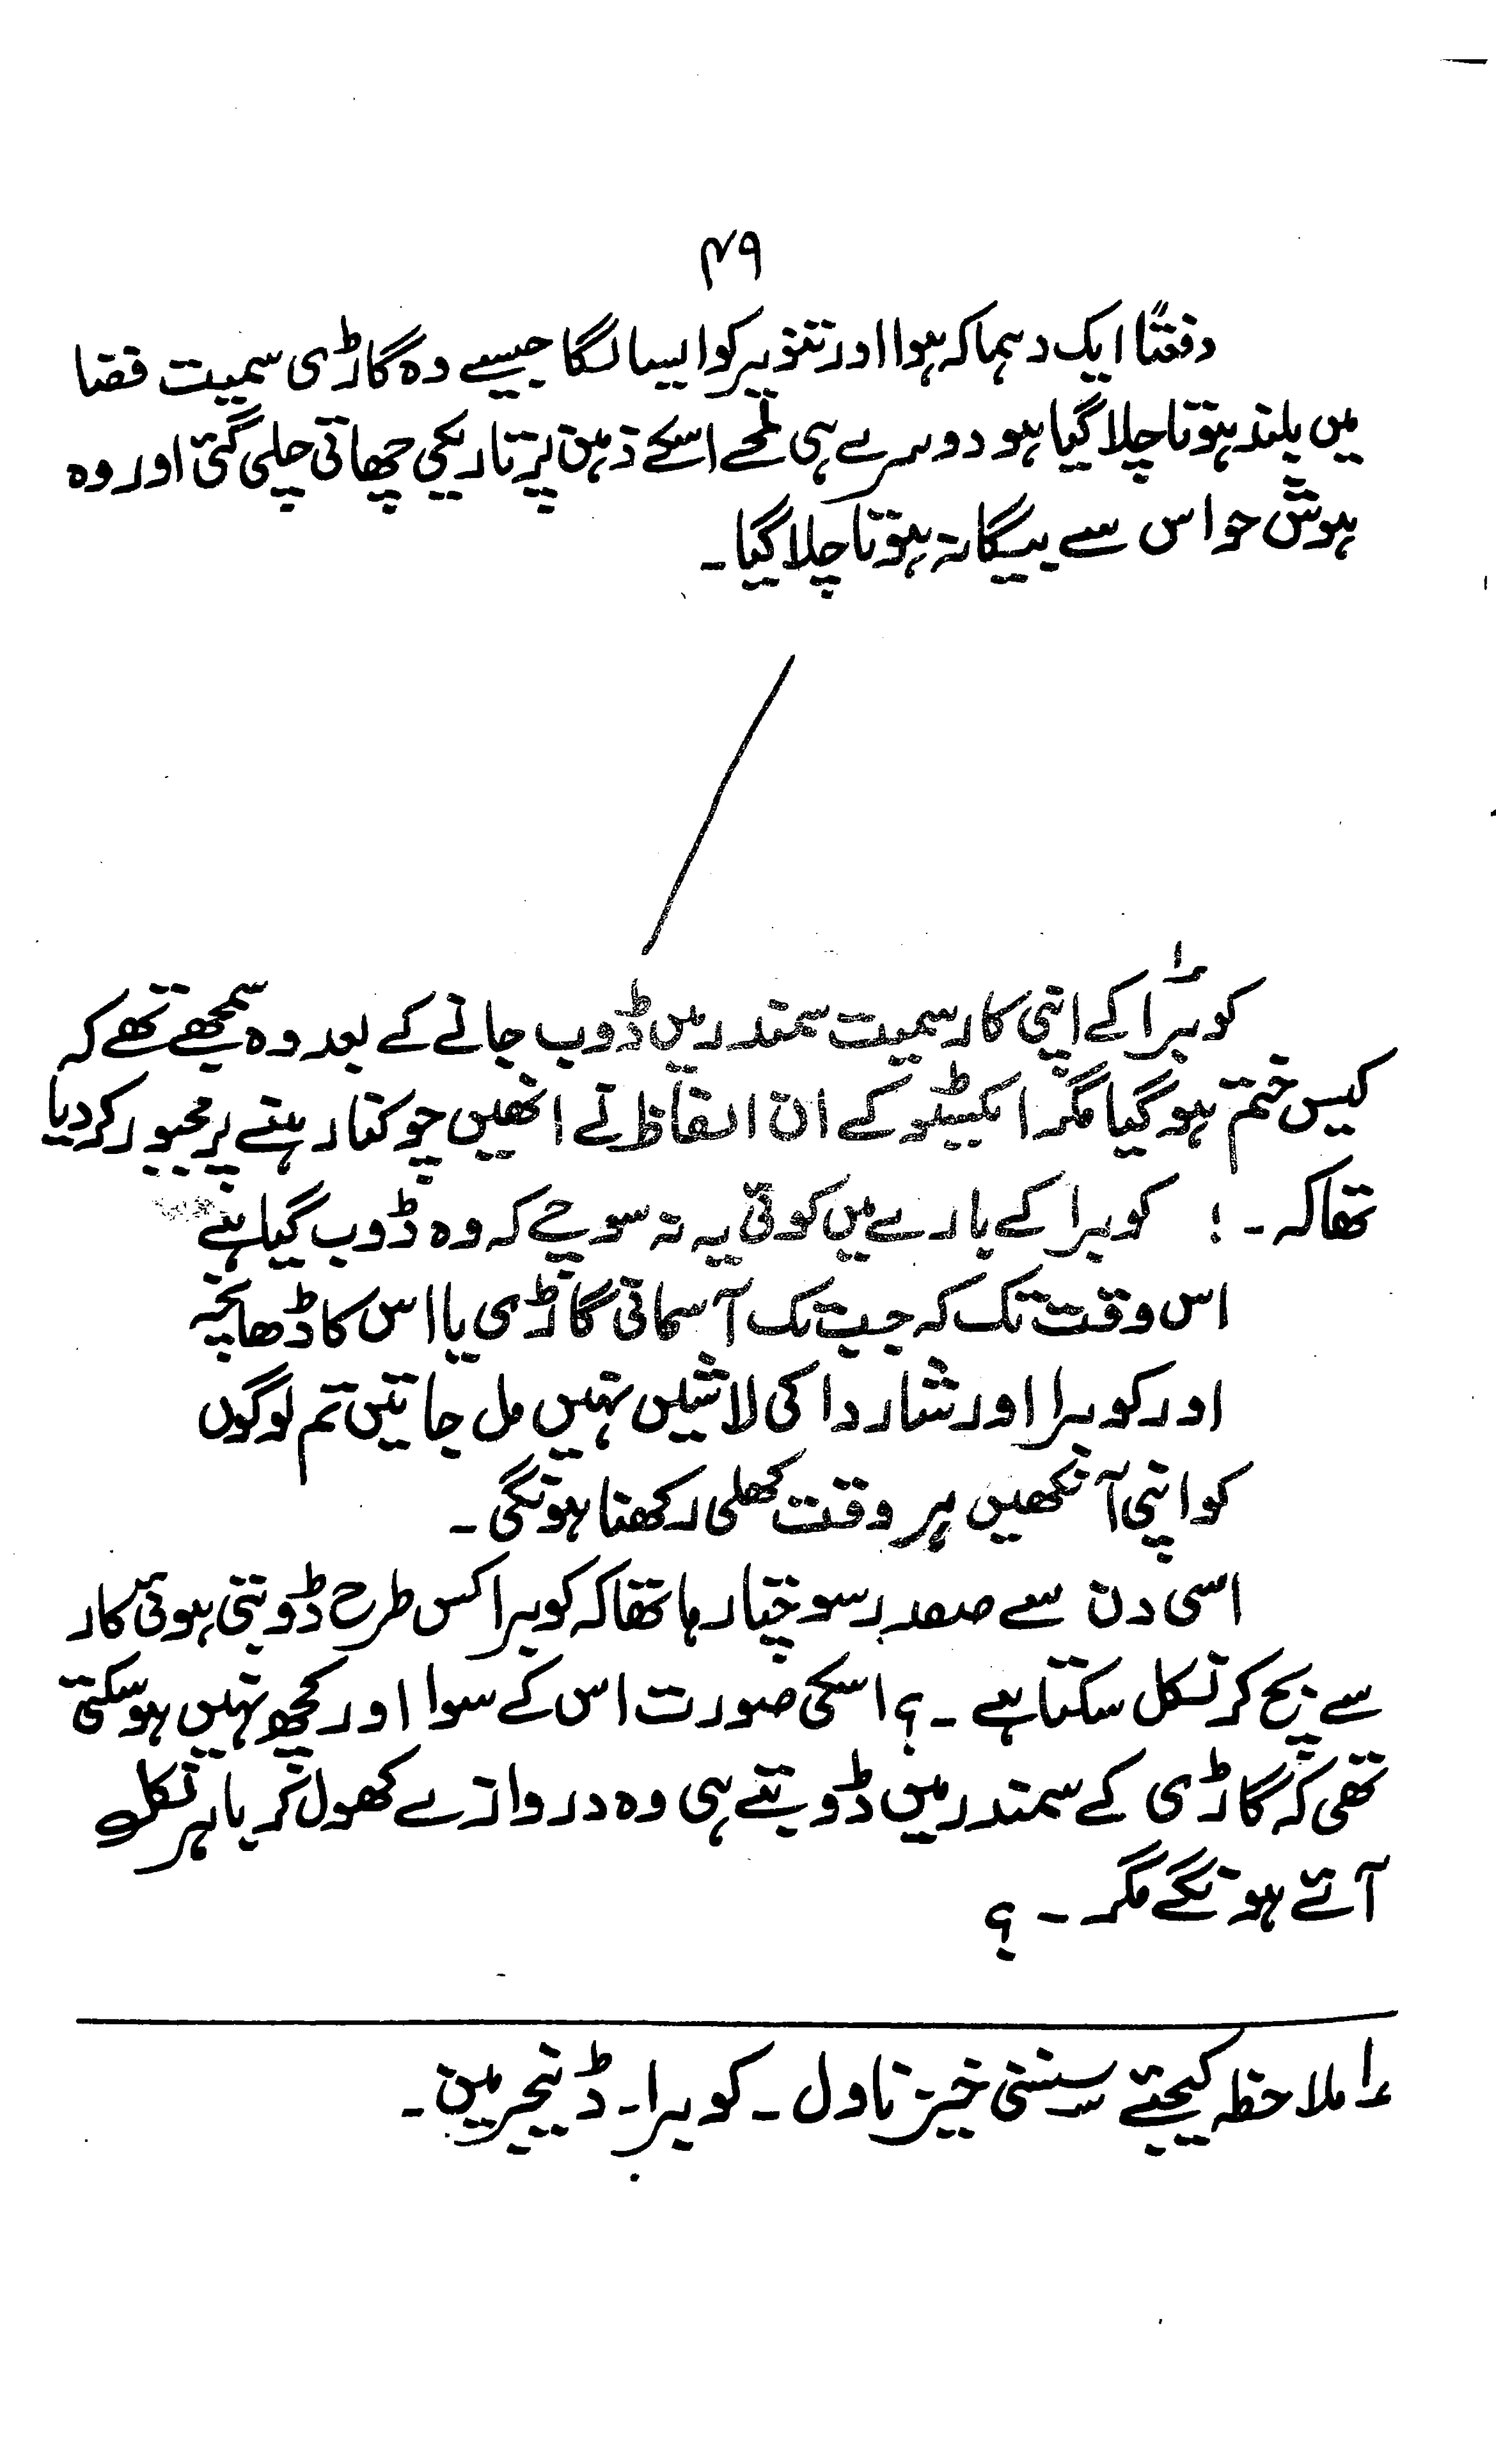 ۴۹
دفعتًا ایک دہماکہ ہوا اور تنویر کو ایسا لگا جیسے وہ گاڑی سمیت فضا
میں بلند ہوتا چلا گیا ہو دوسرے ہی لمحے اسکے ذہن پر تاریکی چھاتی چلی گئی اور وہ
ہوش حواس سے بیگانہ ہوتا چلا گیا۔
کوبرا۱ کے اپنی کار سمیت سمندر میں ڈوب جانے کے بعد وہ سمجھے تھے کہ
کیس ختم ہو گیا مگر ایکسٹو کے ان الفاظ نے انھیں چوکنا رہنے پر مجبور کر دیا
تھا کہ ۔ ! کوبرا کے بارے میں کوئی یہ نہ سوچے کہ وہ ڈوب گیا ہے
اس وقت تک کہ جب تک آسمانی گاڑی یا اس کا ڈھانچہ
اور کوبرا اور شاردا کی لاشیں نہیں مل جاتیں تم لوگوں
کو اپنی آنکھیں ہر وقت کھلی رکھنا ہونگی ۔
اسی دن سے صفدر سوچتا رہا تھا کہ کوبرا کس طرح ڈوبتی ہوئی کار
سے بچ کر نکل سکتا ہے ۔ ؟ اسکی صورت اس کے سوا اور کچھ نہیں ہو سکتی
تھی کہ گاڑی کے سمندر میں ڈوبتے ہی وہ دروازے کھول کر باہر نکل
آئے ہونگے مگر ۔ ؟
۱؎ ملاحظہ کیجئے سنسنی خیز ناول ۔ کوبرا ۔ ڈینجر مین ۔